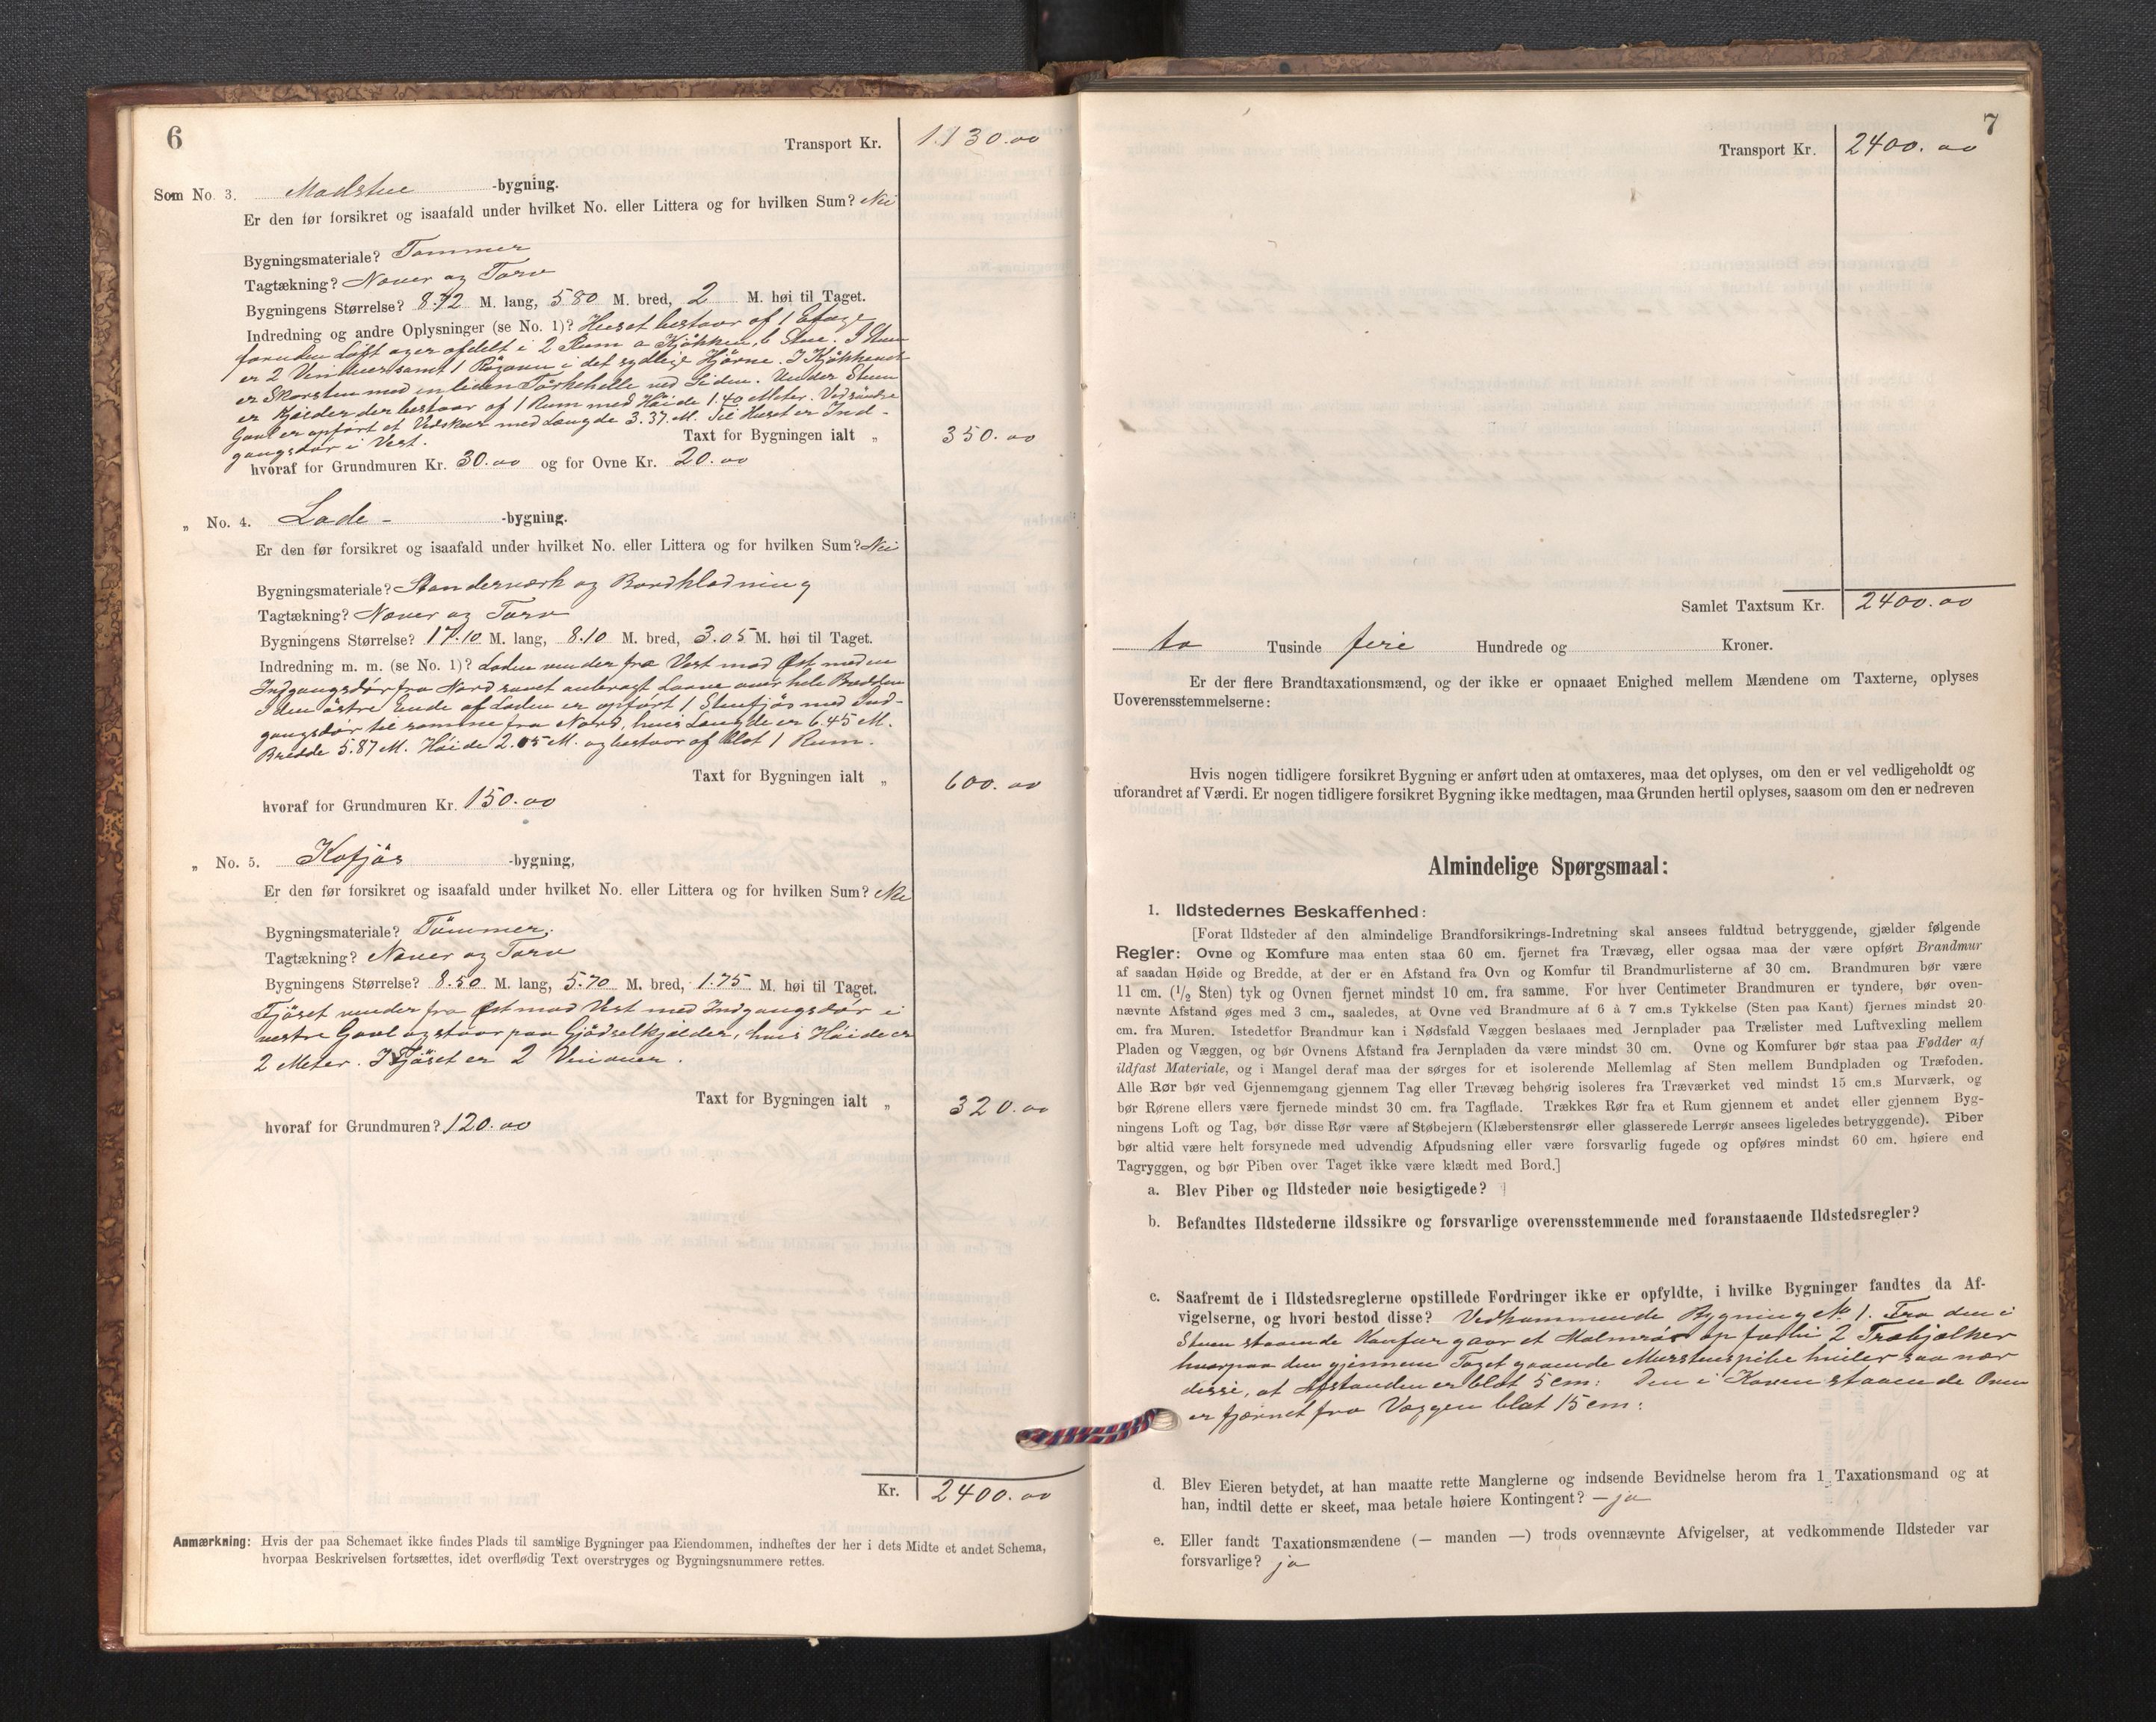 6
Transport Kr. 1130.00
Som No. 3. Madstue -bygning.
Er den før forsikret og isaafald under hvilket No. eller Littera og for hvilken Sum? Nei
Bygningsmateriale? Tømmer
Tagtækning? Næver og Torv
Bygningens Størrelse? 8.72 M. lang, 5.80 M. bred, 2 M. høi til Taget.
Indredning og andre Oplysninger (se No. 1)? Huset bestaar af 1 Etage
foruden Loft og er afdelt i 2 Rum a Kjøkken, b Stue. I Stuen
er 2 Vinduer samt 1 Røgovn i det sydlige Hjørne. I Kjøkkenet
er Skorsten med en liden Tørkehelle ved Siden. Under Stuen
er Kjelder der bestaar af 1 Rum med Høide 1.40 Meter. Ved søndre
Gavl er opført et Vedskur med Længde 3.37 M. Til Huset er Ind-
gangsdør i Vest.
Taxt for Bygningen ialt „ 350.00
hvoraf for Grundmuren Kr. 30.00 og for Ovne Kr. 20.00
„ No. 4. Lade- -bygning.
Er den før forsikret og isaafald under hvilket No. eller Littera og for hvilken Sum? Nei
Bygningsmateriale? Standerværk og Bordklædning
Tagtækning? Næver og Torv
Bygningens Størrelse? 17.10 M. lang, 8.10 M. bred, 3.05 M. høi til Taget.
Indredning m. m. (se No. 1)? Laden vender fra Vest mod Øst med en
Indgangsdør fra Nord samt anbragt Laave over hele Bredden
I den østre Ende af Laden er opført 1 Stenfjøs med Ind-
gangsdør til samme fra Nord, hvis Længde er 6.45 M.
Bredde 5.87 M. Høide 2.05 M. og bestaar af blot 1 Rum.
Taxt for Bygningen ialt „ 600.00
hvoraf for Grundmuren Kr. 150.00
„ No. 5. Kofjøs -bygning,
Er den før forsikret og isaafald under hvilket No. eller Littera og for hvilken Sum? Nei
Bygningsmateriale? Tømmer.
Tagtækning? Næver og Torv
Bygningens Størrelse? 8.50 M. lang, 5.70 M. bred, 1.75 M. høi til Taget.
Fjøset vender fra Øst mod Vest med Indgangsdør i
vestre Gavl og staar paa Gjødselkjælder, hvis Høide er
2 Meter. I Fjøset er 2 Vinduer.
Taxt for Bygningen ialt „ 320.00
hvoraf for Grundmuren? 120.00
Kr. 2400.00
Anmærkning: Hvis der paa Schemaet ikke findes Plads til samtlige Bygninger paa Eiendommen, indheftes der her i dets Midte et andet Schema,
hvorpaa Beskrivelsen fortsættes, idet overflødig Text overstryges og Bygningsnummere rettes.
7
Transport Kr. 2400.00
Samlet Taxtsum Kr. 2400.00
to Tusinde fire Hundrede og Kroner.
Er der flere Brandtaxationsmænd, og der ikke er opnaaet Enighed mellem Mændene om Taxterne, oplyses
Uoverensstemmelserne:
Hvis nogen tidligere forsikret Bygning er anført uden at omtaxeres, maa det oplyses, om den er vel vedligeholdt og
uforandret af Værdi. Er nogen tidligere forsikret Bygning ikke medtagen, maa Grunden hertil oplyses, saasom om den er nedreven
Almindelige Spørgsmaal:
1. Ildstedernes Beskaffenhed:
[Forat Ildsteder af den almindelige Brandforsikrings-Indretning skal ansees fuldtud betryggende, gjælder følgende
Regler: Ovne og Komfure maa enten staa 60 cm. fjernet fra Trævæg, eller ogsaa maa der være opført Brandmur
af saadan Høide og Bredde, at der er en Afstand fra Ovn og Komfur til Brandmurlisterne af 30 cm. Brandmuren bør være
11 cm. (1/2 Sten) tyk og Ovnen fjernet mindst 10 cm. fra samme. For hver Centimeter Brandmuren er tyndere, bør oven-
nævnte Afstand øges med 3 cm., saaledes, at Ovne ved Brandmure af 6 à 7 cm.s Tykkelse (Sten paa Kant) fjernes mindst 20
cm. fra Muren. Istedetfor Brandmur kan i Nødsfald Væggen beslaaes med Jernplader paa Trælister med Luftvexling mellem
Pladen og Væggen, og bør Ovnens Afstand fra Jernpladen da være mindst 30 cm. Ovne og Komfurer bør staa paa Fødder af
ildfast Materiale, og i Mangel deraf maa der sørges for et isolerende Mellemlag af Sten mellem Bundpladen og Træfoden.
Alle Rør bør ved Gjennemgang gjennem Tag eller Trævæg behørig isoleres fra Træværket ved mindst 15 cm.s Murværk, og
bør Rørene ellers være fjernede mindst 30 cm. fra Tagflade. Trækkes Rør fra et Rum gjennem et andet eller gjennem Byg-
ningens Loft og Tag, bør disse Rør være af Støbejern (Klæberstensrør eller glasserede Lerrør ansees ligeledes betryggende). Piber
bør altid være helt forsynede med udvendig Afpudsning eller være forsvarlig fugede og opføres mindst 60 cm. høiere end
Tagryggen, og bør Piben over Taget ikke være klædt med Bord.]
a. Blev Piber og Ildsteder nøie besigtigede?
b. Befandtes Ildstederne ildssikre og forsvarlige overensstemmende med foranstaaende Ildstedsregler?
c. Saafremt de i Ildstedsreglerne opstillede Fordringer ikke er opfyldte, i hvilke Bygninger fandtes da Af-
vigelserne, og hvori bestod disse? Vedkommende Bygning № 1. Fra den i
Stuen staaende Komfur gaar et Malmrør op forbi 2 Træbjælker
hvorpaa den gjennem Taget gaaende Murstenspibe hviler saa nær
disse, at Afstanden er blot 5 cm: Den i Koven staaende Ovn
er fjernet fra Væggen blot 15 cm:
d. Blev Eieren betydet, at han maatte rette Manglerne og indsende Bevidnelse herom fra 1 Taxationsmand og at
han, indtil dette er skeet, maa betale høiere Kontingent? – ja
e. Eller fandt Taxationsmændene (— manden —) trods ovennævnte Afvigelser, at vedkommende Ildsteder var
forsvarlige? ja